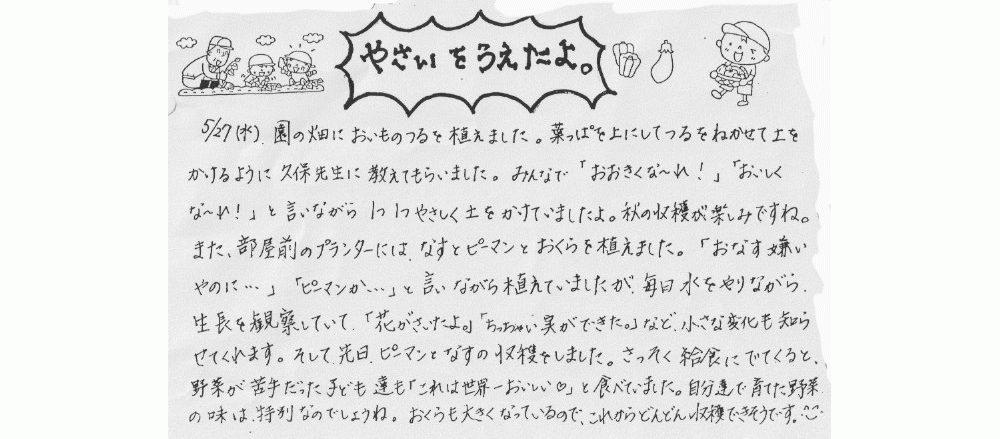 やさいをうえたよ。
5/27(水) 園の畑においものつるを植えました。葉っぱを上にしてつるをねかせて土を
かけるように久保先生に教えてもらいました。みんなで「おおきくな〜れ！」「おいしく
な〜れ！」と言いながら 1つ1つやさしく土をかけていましたよ。秋の収穫が楽しみですね。
また、部屋前のプランターには、なすとピーマンとおくらを植えました。「おなす嫌い
やのに…」「ピーマンか…」と言いながら植えていましたが、毎日水をやりながら、
生長を観察していて、「花がさいたよ。」「ちっちゃい実ができた。」など、小さな変化も知ら
せてくれます。そして、先日、ピーマンとなすの収穫をしました。さっそく給食にでてくると、
野菜が苦手だった子ども達も「これは世界一おいしい♡」と食べていました。自分達で育てた野菜
の味は、特別なのでしょうね。おくらも大きくなっているので、これからどんどん収穫できそうです。